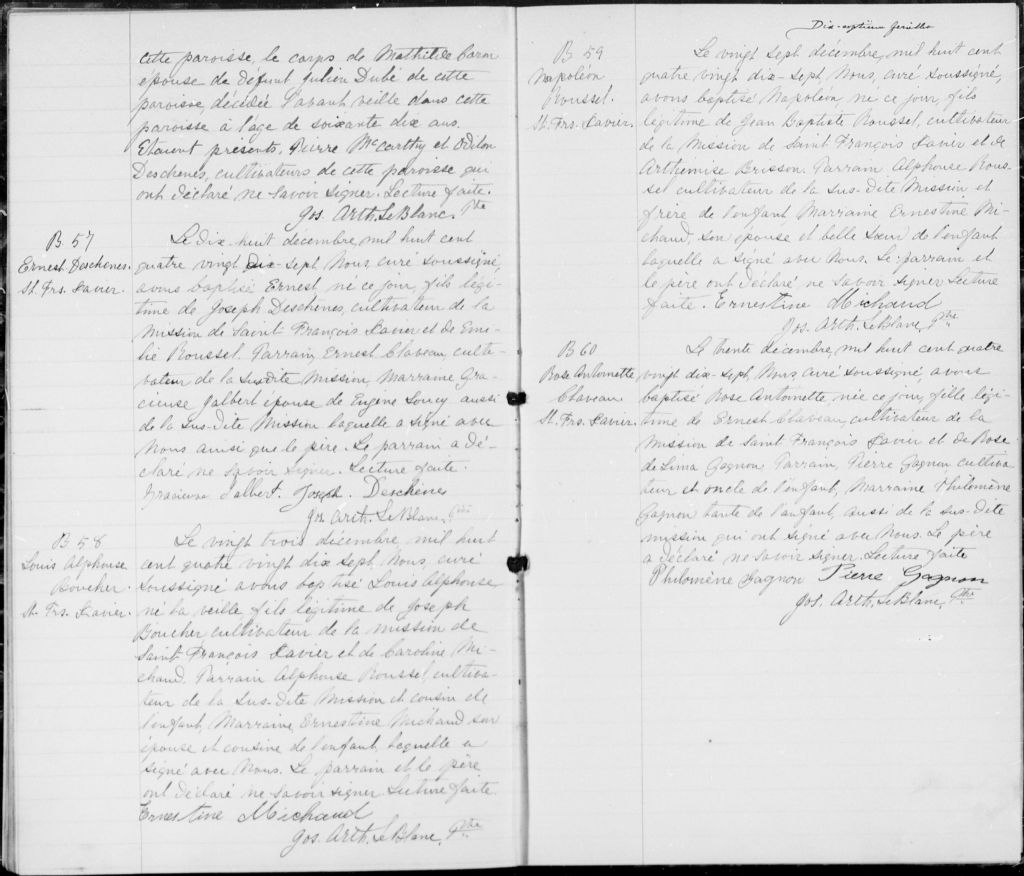 cette paroisse, le corps de Mathilde Caron
épouse de défunt Julien Dubé de cette
paroisse, décédée l'avant veille dans cette
paroisse à l'age de soixante dix ans.
Etaient présents, Pierre McCarthy et Odilon
Deschenes, cultivateurs de cette paroisse qui
ont déclaré ne savoir signer. Lecture faite.
Jos. Arth. LeBlanc, Ptre
B 57
Ernest Deschenes.
St. Frs. Xavier.
Le dix-huit décembre, mil huit cent
quatre vingt dix-sept, Nous, curé soussigné,
avons baptisé Ernest né ce jour, fils légi-
time de Joseph Deschênes, cultivateur de la
mission de Saint François Xavier et de Emé-
lie Roussel. Parrain, Ernest Claveau, culti-
vateur de la susdite Mission, Marraine Gra-
cieuse Jalbert épouse de Eugène Soucy aussi
de la Sus-Dite Mission laquelle a signé avec
Nous ainsi que le père. Le parrain a dé-
claré ne savoir signer. Lecture faite.
Gracieuse Jalbert. Joseph Deschênes
Jos. Arth. LeBlanc, Ptre
B 58
Louis Alphonse
Boucher.
St. Frs. Xavier.
Le vingt trois décembre, mil huit
cent quatre vingt dix sept, Nous, curé
soussigné avons baptisé Louis Alphonse
né la veille fils légitime de Joseph
Boucher cultivateur de la mission de
Saint François Xavier et de Caroline Mi-
chaud. Parrain Alphonse Roussel, cultiva-
teur de la Sus-Dite Mission et cousin de
l'enfant, Marraine, Ernestine Michaud son
épouse et cousine de l'enfant, laquelle a
signé avec Nous. Le parrain et le père
ont déclaré ne savoir signer Lecture faite.
Ernestine Michaud
Jos. Arth. LeBlanc, Ptre
Dix-septième feuillet
B 59
Napoléon
Roussel.
St. Frs. Xavier.
Le vingt sept décembre, mil huit cent
quatre vingt dix-sept, Nous, curé soussigné,
avons baptisé Napoléon, né ce jour, fils
légitime de Jean Baptiste Roussel, cultivateur
de la Mission de Saint François Xavier et de
Arthémise Brisson. Parrain Alphonse Rous-
sel cultivateur de la Sus-Dite Mission et
frère de l'enfant Marraine Ernestine Mi-
chaud, son épouse et belle soeur de l'enfant
laquelle a signé avec Nous. Le parrain et
le père ont déclaré ne savoir signer Lecture
faite. Ernestine Michaud
Jos. Arth. LeBlanc, Ptre
B 60
Rose Antoinette
Claveau
St. Frs. Xavier.
Le trente décembre, mil huit cent quatre
vingt dix-sept, Nous, curé soussigné, avons
baptisé Rose Antoinette née ce jour, fille légi-
time de Ernest Claveau, cultivateur de la
mission de Saint François Xavier et de Rose
de Lima Gagnon. Parrain, Pierre Gagnon cultiva-
teur et oncle de l'enfant, Marraine Philomène
Gagnon tante de l'enfant, aussi de la Sus-Dite
mission qui ont signé avec Nous. Le père
a déclaré ne savoir signer. Lecture faite
Philomène Gagnon Pierre Gagnon
Jos. Arth. LeBlanc, Ptre